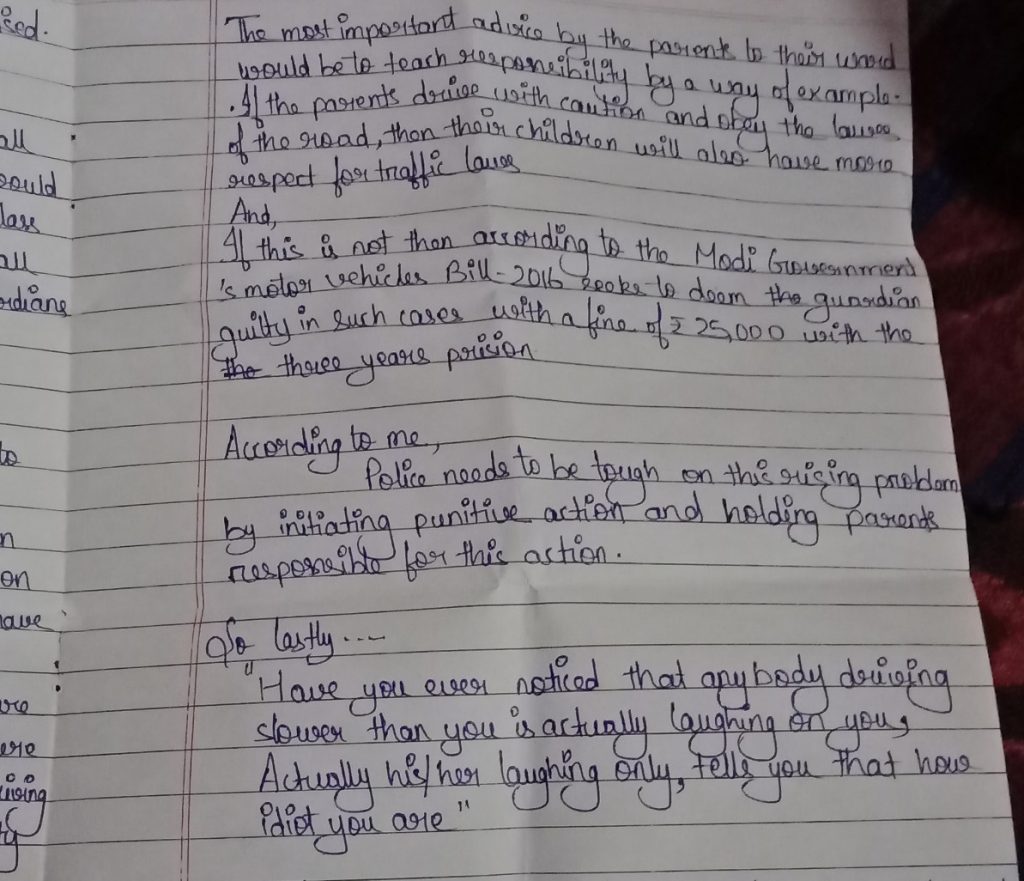 ised.
all
sould
lass
all
rdians
to
n
on
have
ve
ere
iving
ty
The most important advice by the parents to their ward
would be to teach responsibility by a way of example.
. If the parents drive with caution and obey the lawes
of the road, then their children will also have more
respect for traffic laws
And,
If this is not then according to the Modi Government
's motor vehicles Bill - 2016 seeks to deem the guardian
guilty in such cases with a fine of ₹ 25,000 with the
the three years prision
According to me,
Police needs to be tough on this rising problem
by initiating punitive action and holding parents
responsible for this action.
So lastly ----
"Have you ever noticed that anybody driving
slower than you is actually laughing on you,
Actually his/her laughing only, tells you that how
idiot you are"